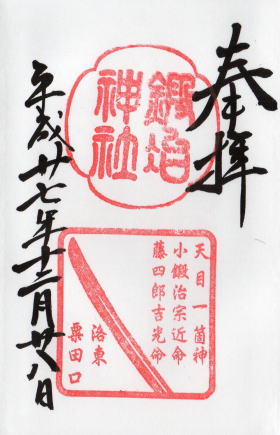 奉拝
鍛冶
神社
天目一箇神
小鍛治宗近命
藤四郎吉光命
洛東
粟田口
平成廿七年十二月廿八日